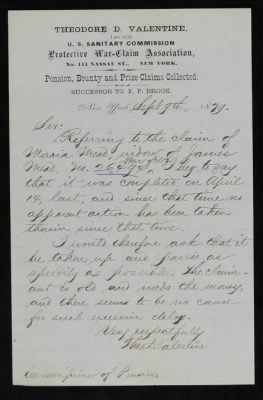 THEODORE D. VALENTINE,
Late with
U. S. SANITARY COMMISSION
Protective War-Claim Association,
No. 111 NASSAU ST., NEW YORK.
Pension, Bounty and Prize Claims Collected.
SUCCESSOR TO E. P. BROOK.
New York Sept 9th, 1879.
Sir:
Referring to the claim of
Maria Mead, widow of James
Mead, No. I beg to say
that it was completed on April
14, last, and since that time no
apparent action has been taken
therein since that time.
I would therefore ask that it
be taken up and passed as
speedily as possible. The claim-
ant is old and needs the money,
and there seems to be no cause
for such excessive delay.
Very respectfully
Theo D Valentine
Commissioner of Pensions